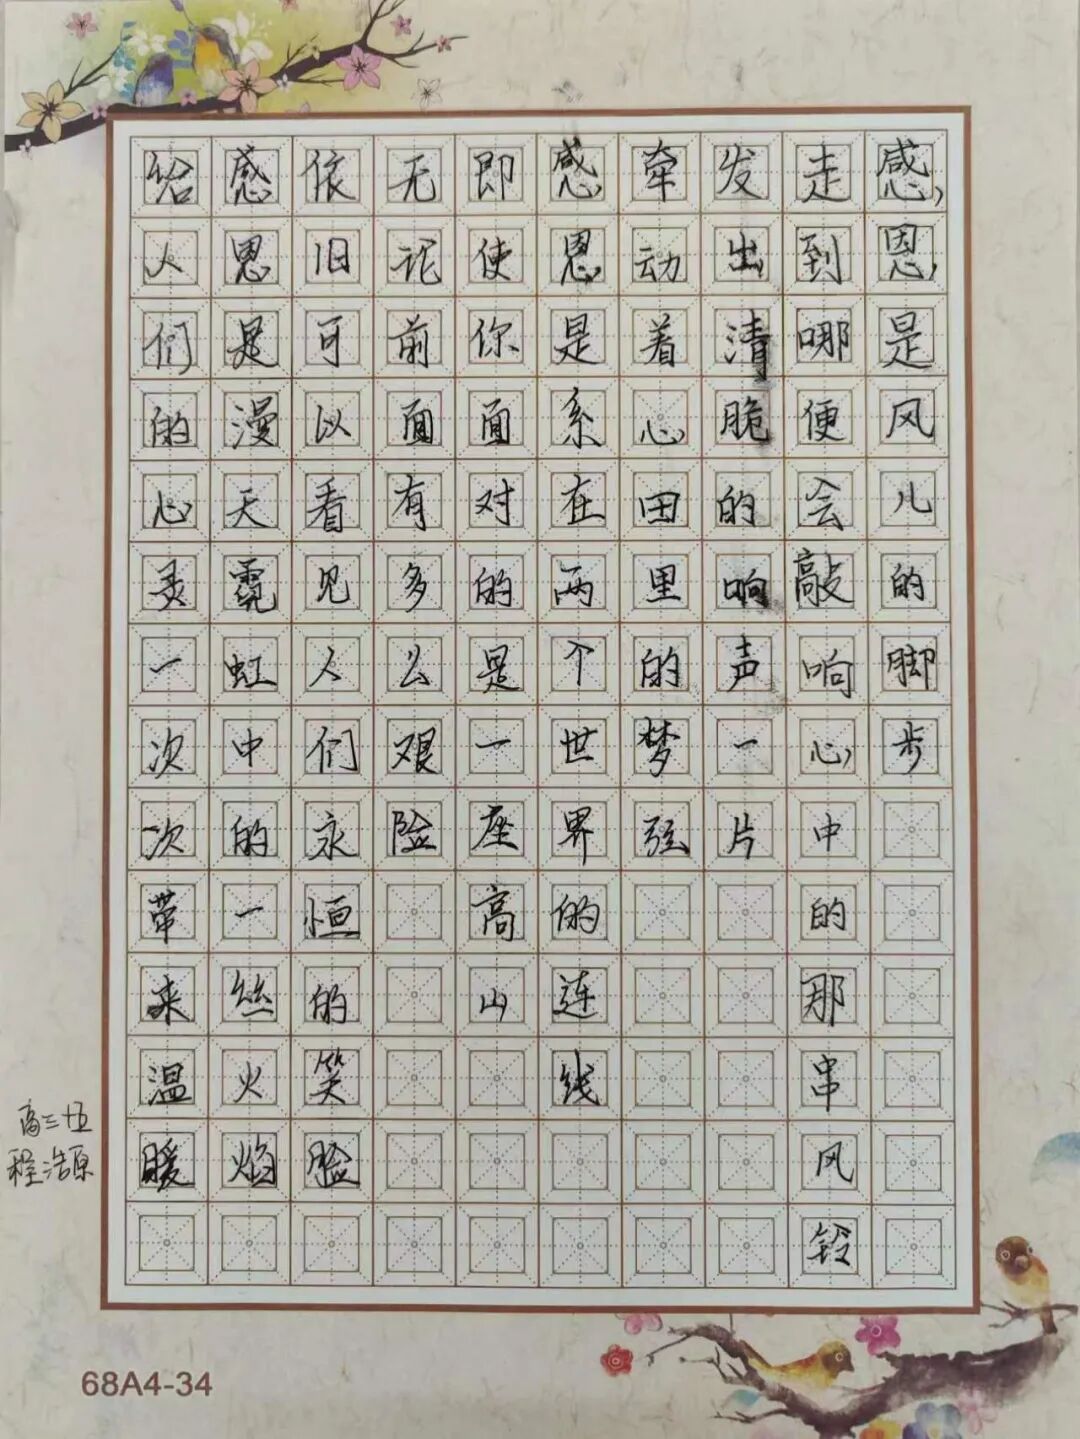 感恩是风儿的脚步
走到哪便会敲响心中的那串风铃
发出清脆的响声一片
牵动着心田里的梦弦
感恩是系在两个世界的连线
即使你面对的是一座高山
无论前面有多么艰险
依旧可以看见人们永恒的笑脸
感恩是漫天霓虹中的一丝火焰
给人们的心灵一次次带来温暖
高三五
程浩原
68A4-34